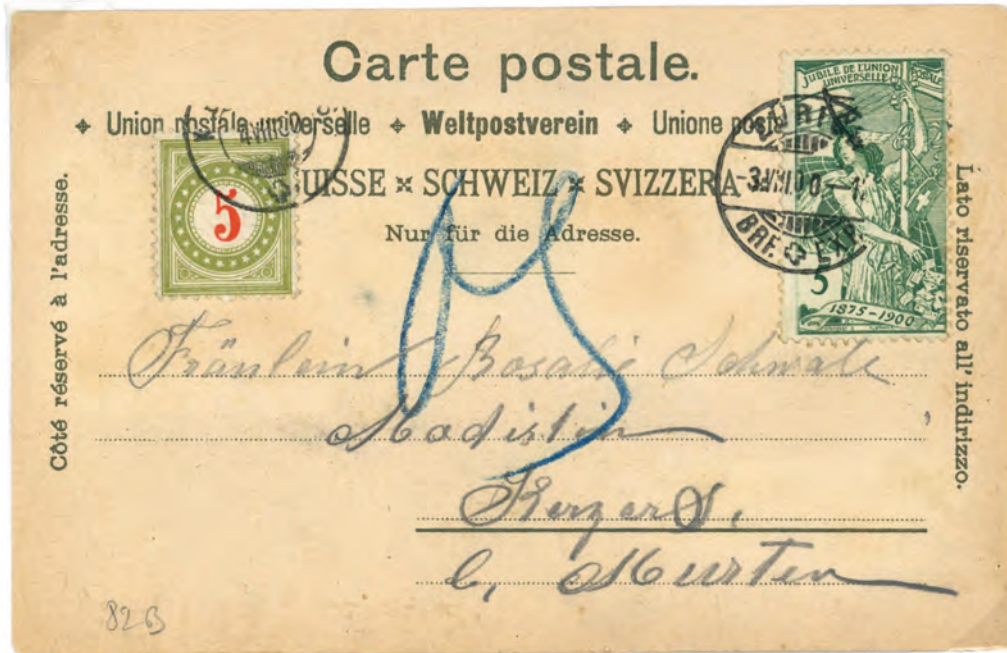 Carte postale.
Union postale universelle Weltpostverein Unione
SUISSE SCHWEIZ SVIZZERA
Nur für die Adresse.
Côté réservé à l'adresse.
Lato riservato all' indirizzo.
5
JUBILÉ DE L'UNION POSTALE
UNIVERSELLE
5
1875-1900
BRF. EXP.
Fräulein Rosalie
Modistin
Kerzers.
b, Murten
82B